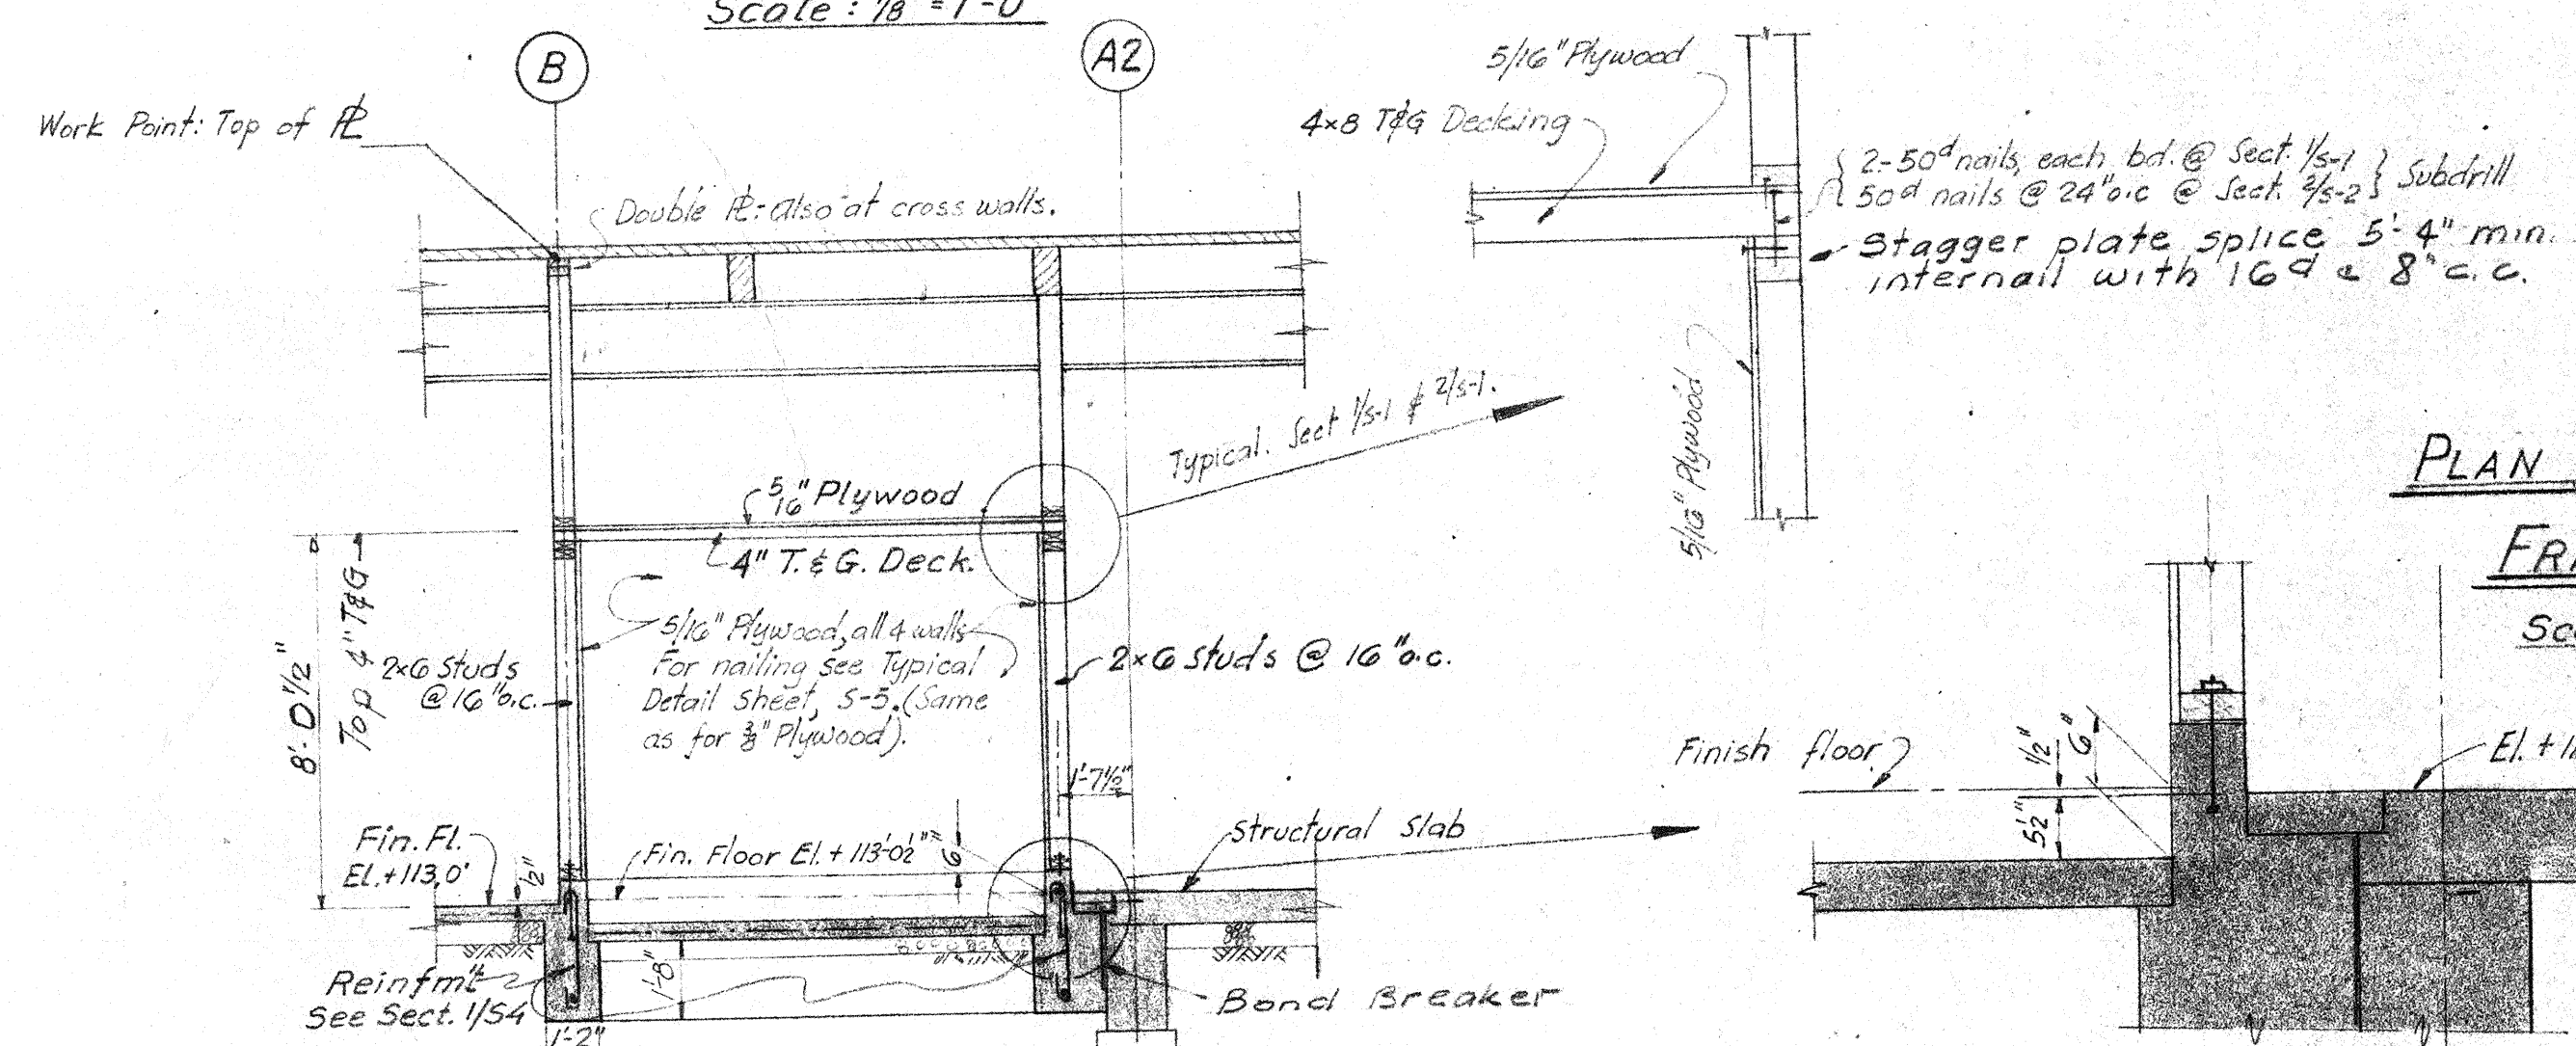 Scale: 1/8" = 1'-0"
B
A2
Work Point: Top of PL
Double PL: also at cross walls.
5/16" Plywood
4×8 T&G Decking
2-50d nails, each bd. @ Sect. 1/S-1
50d nails @ 24" o.c @ Sect. 2/S-2
Subdrill
Stagger plate splice 5'-4" min.
internail with 16d @ 8" c.c.
Typical. Sect 1/S-1 & 2/S-1.
5/16" Plywood
PLAN
5/16" Plywood
4" T.&G. Deck.
FRA
Sc
8'-0 1/2"
Top 4" T&G
2×6 Studs
@ 16" o.c.
5/16" Plywood, all 4 walls
For nailing see Typical
Detail Sheet, S-5. (Same
as for 3/8" Plywood).
2×6 Studs @ 16" o.c.
1'-7 1/2"
Finish floor
1/2"
6"
5 1/2"
El. + 11
Fin. Fl.
El. +113.0'
1/2"
Fin. Floor El. + 113'-0 1/2"
6"
Structural Slab
Reinfm't
See Sect. 1/S4
1'-8"
Bond Breaker
1'-2"